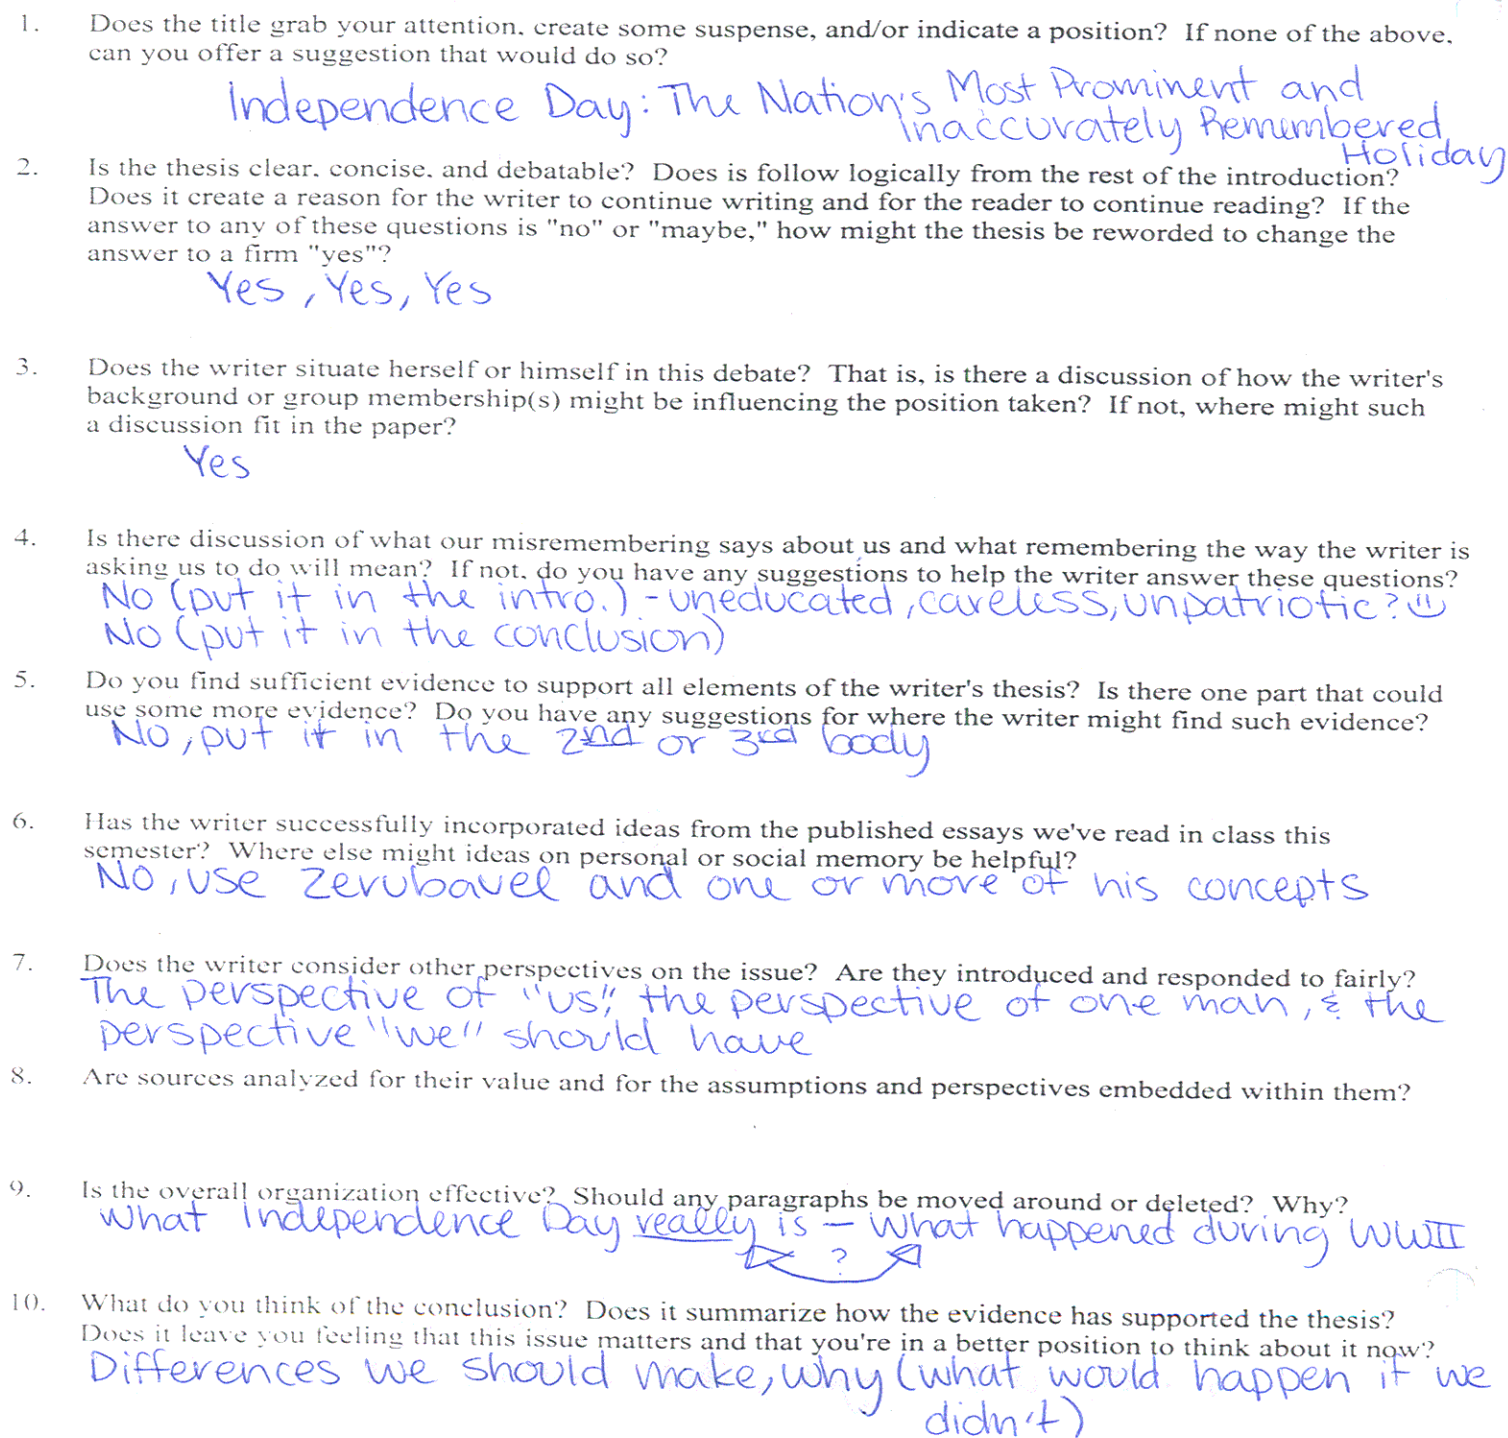 1. Does the title grab your attention, create some suspense, and/or indicate a position? If none of the above,
can you offer a suggestion that would do so?
Independence Day: The Nation's Most Prominent and
Inaccurately Remembered
Holiday
2. Is the thesis clear, concise, and debatable? Does is follow logically from the rest of the introduction?
Does it create a reason for the writer to continue writing and for the reader to continue reading? If the
answer to any of these questions is "no" or "maybe," how might the thesis be reworded to change the
answer to a firm "yes"?
Yes, Yes, Yes
3. Does the writer situate herself or himself in this debate? That is, is there a discussion of how the writer's
background or group membership(s) might be influencing the position taken? If not, where might such
a discussion fit in the paper?
Yes
4. Is there discussion of what our misremembering says about us and what remembering the way the writer is
asking us to do will mean? If not, do you have any suggestions to help the writer answer these questions?
No (put it in the intro.) - uneducated, careless, unpatriotic? ☺
No (put it in the conclusion)
5. Do you find sufficient evidence to support all elements of the writer's thesis? Is there one part that could
use some more evidence? Do you have any suggestions for where the writer might find such evidence?
No, put it in the 2nd or 3rd body
6. Has the writer successfully incorporated ideas from the published essays we've read in class this
semester? Where else might ideas on personal or social memory be helpful?
No, use Zerubavel and one or more of his concepts
7. Does the writer consider other perspectives on the issue? Are they introduced and responded to fairly?
The perspective of "us," the perspective of one man, & the
perspective "we" should have
8. Are sources analyzed for their value and for the assumptions and perspectives embedded within them?
9. Is the overall organization effective? Should any paragraphs be moved around or deleted? Why?
What Independence Day really is – What happened during WWII
?
10. What do you think of the conclusion? Does it summarize how the evidence has supported the thesis?
Does it leave you feeling that this issue matters and that you're in a better position to think about it now?
Differences we should make, why (what would happen if we
didn't)